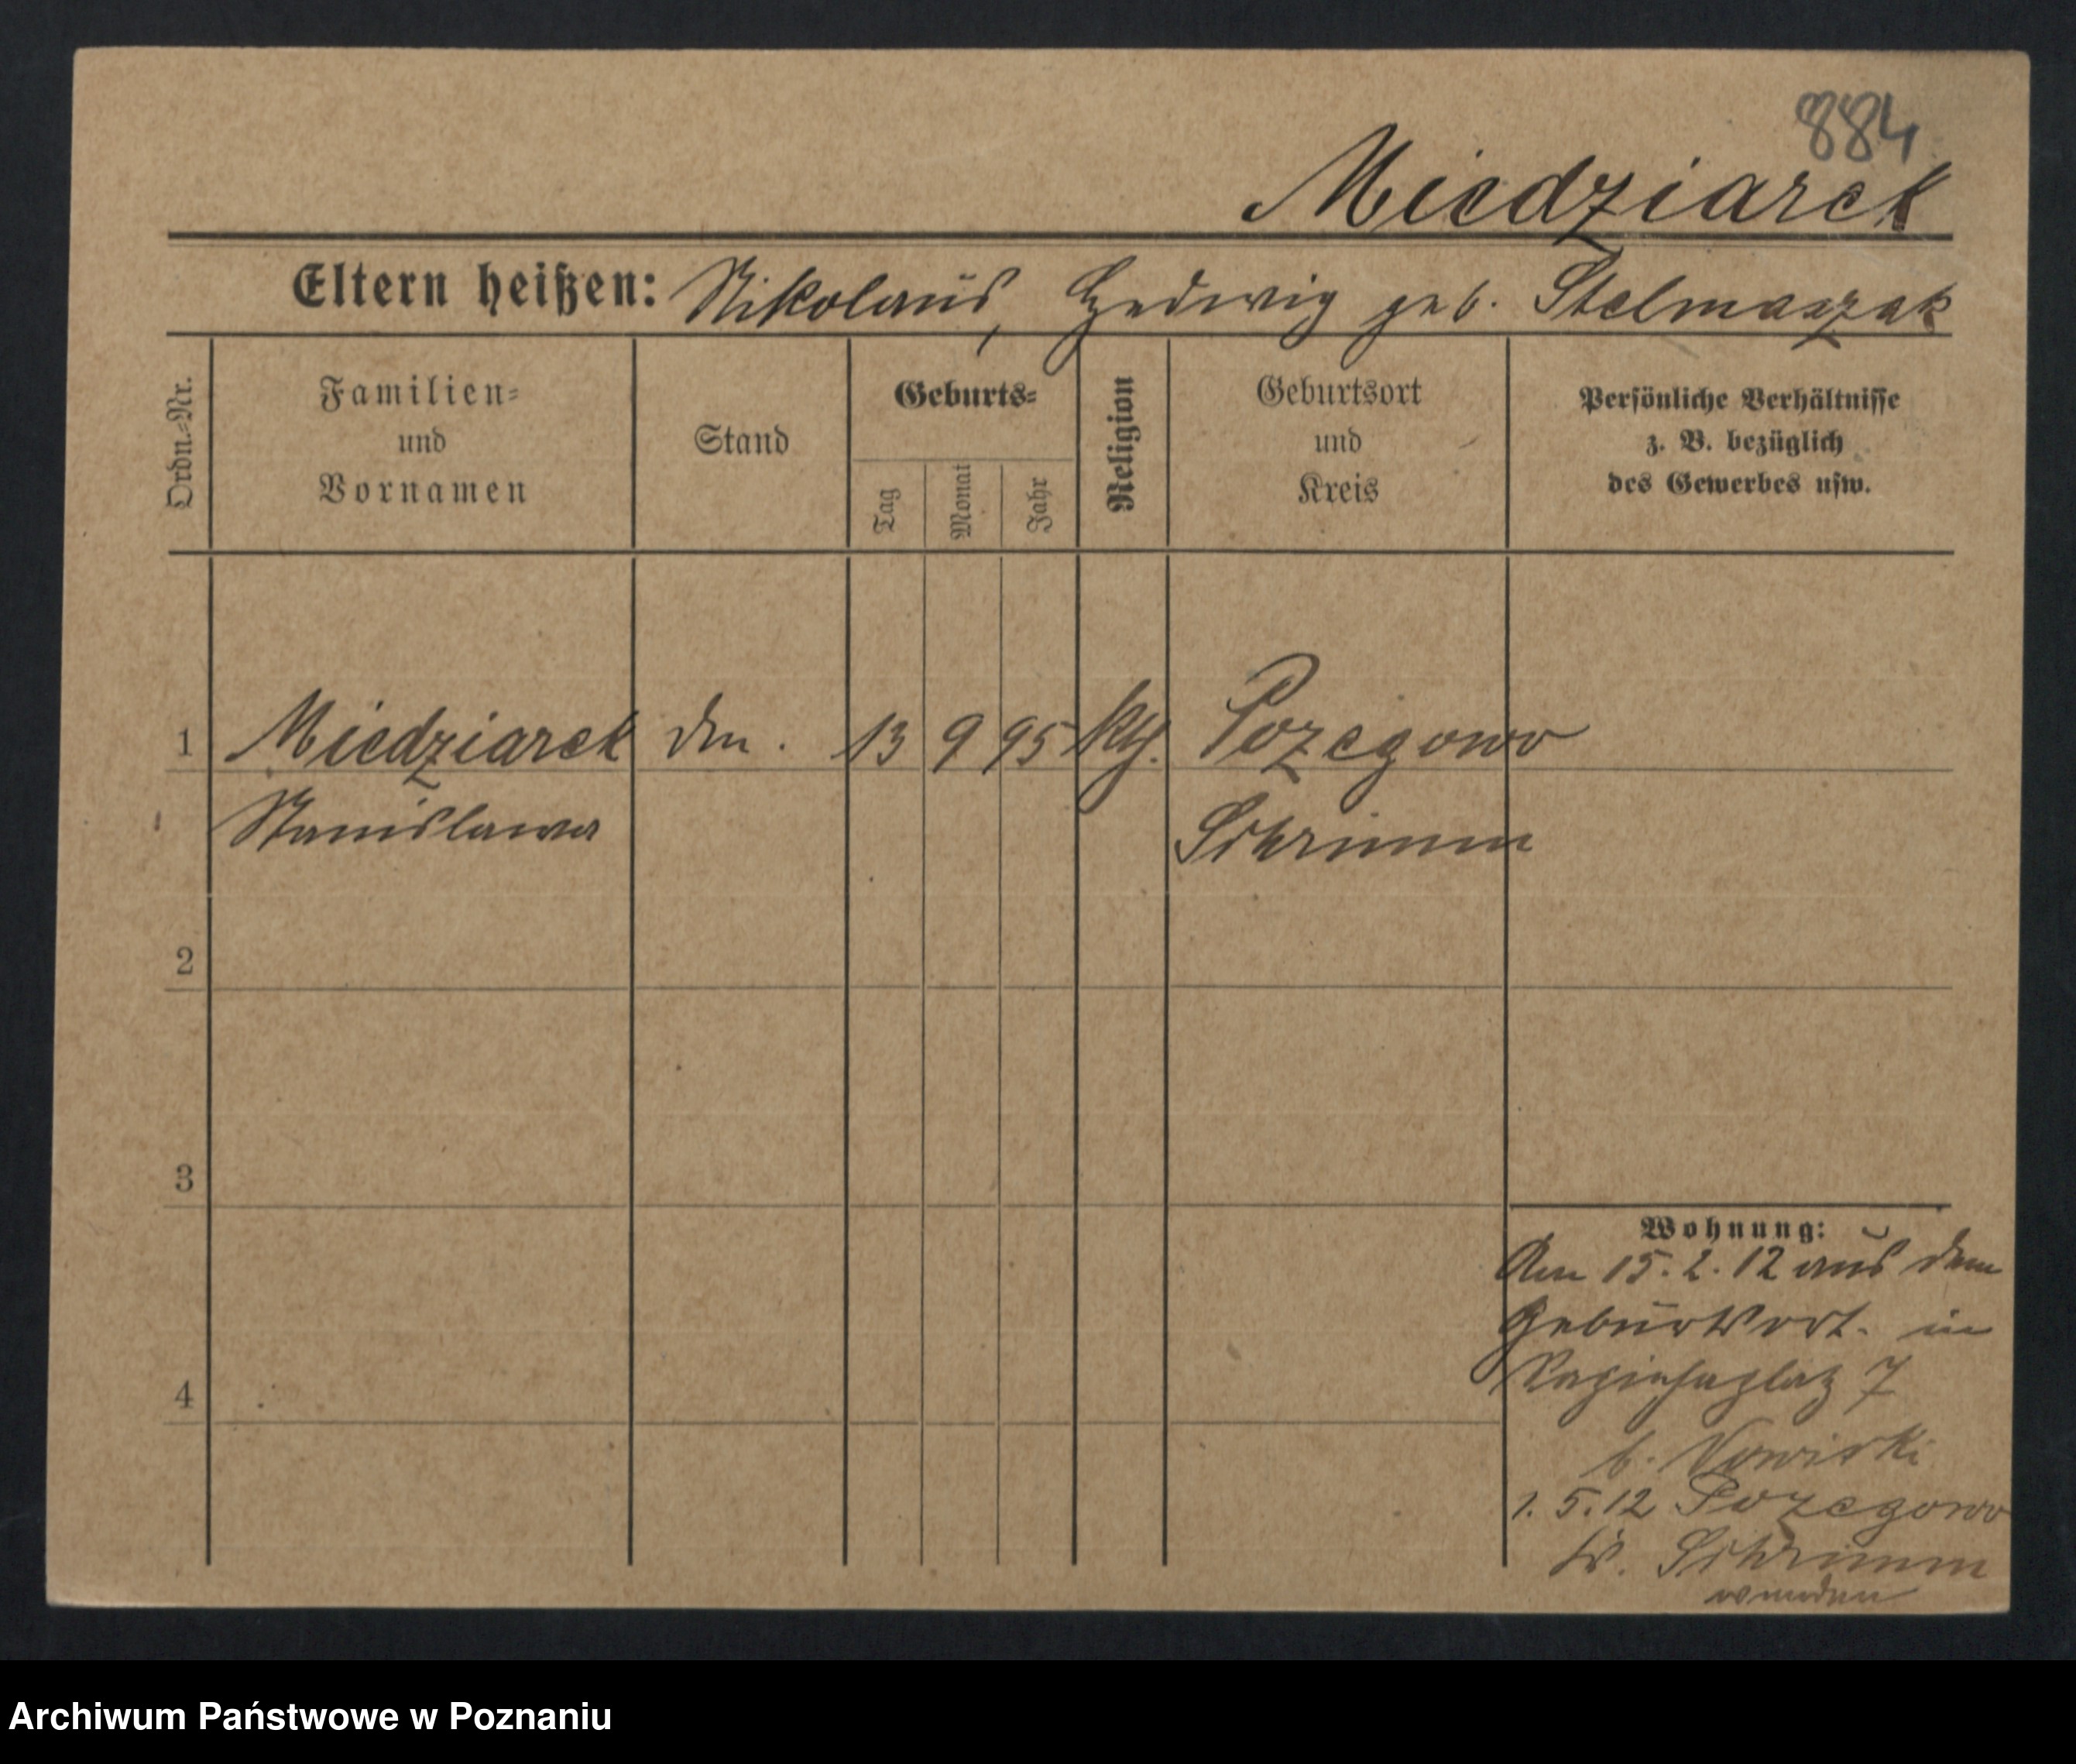 884
Miedziarek
Eltern heißen: Nikolaus, Hedwig geb. Stelmaszak
Ordn.-Nr.
Familien-
und
Vornamen
Stand
Geburts-
Tag
Monat
Jahr
Religion
Geburtsort
und
Kreis
Persönliche Verhältnisse
z. B. bezüglich
des Gewerbes usw.
1 Miedziarek 13 9 95 kth. Pozegowo
Stanislawa Schrimm
2
3
4
Wohnung:
Am 15. 2. 12 aus dem
Geburtsort. in
7
b. Nowicki
1. 5. 12 Pozegowo
Kr. Schrimm
Archiwum Państwowe w Poznaniu